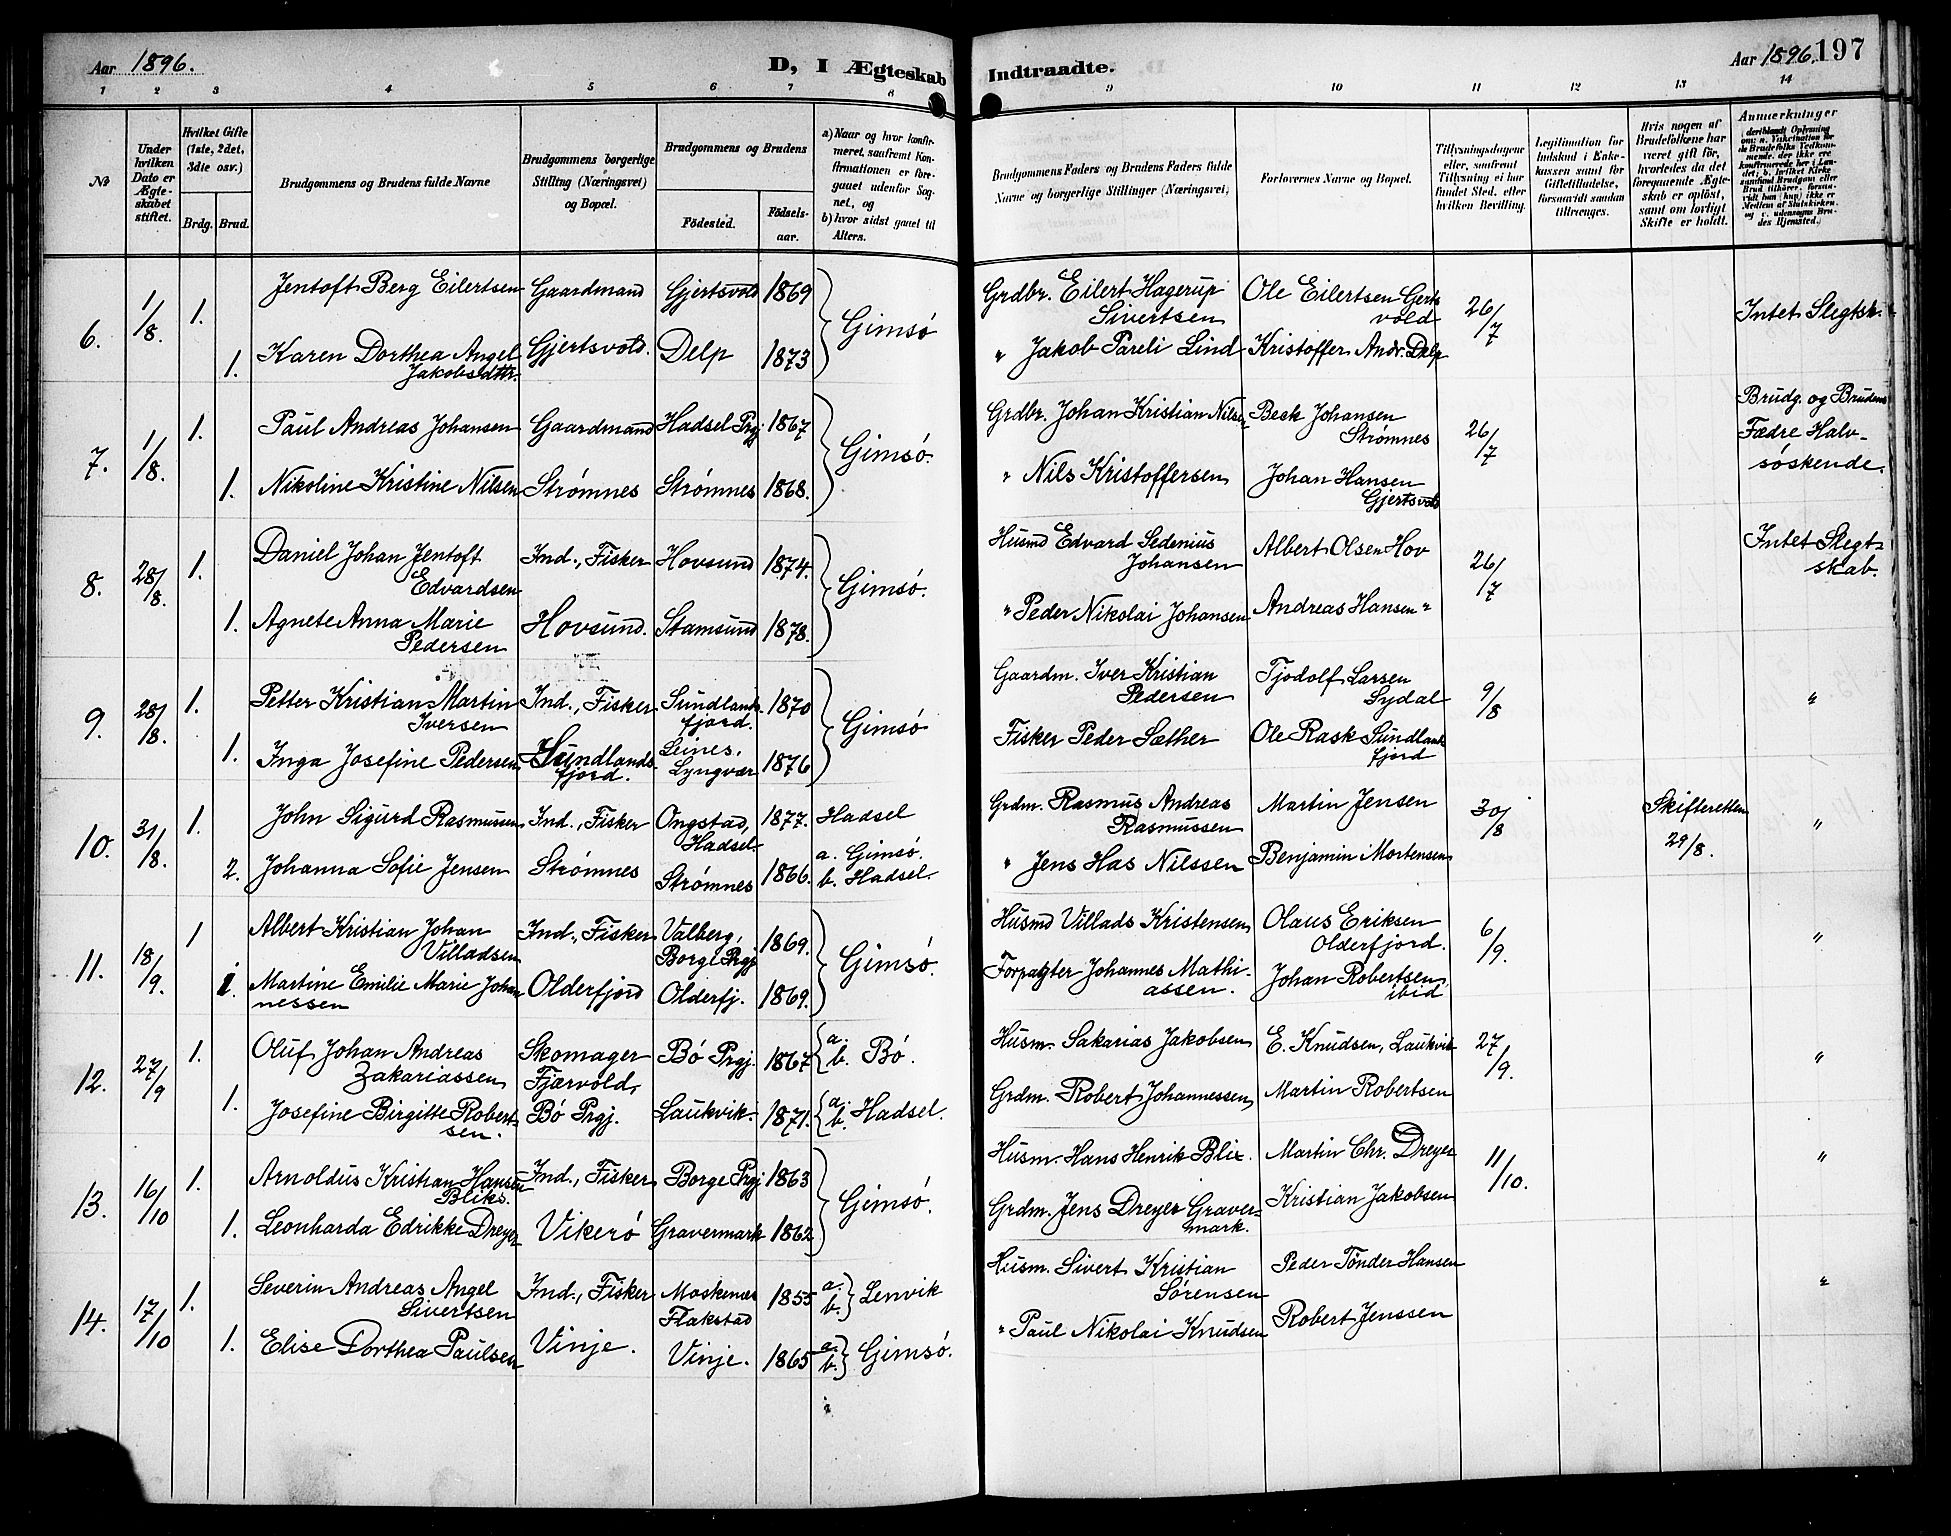 Aar 1896.
D, I Ægteskab Indtraadte.
Aar 1896. 197
1 2 3 4 5 6 7 8 9 10 11 12 13 14
№
Under hvilken Dato er Ægteskabet stiftet.
Hvilket Gifte (1ste, 2det, 3die osv.)
Brdg. Brud.
Brudgommens og Brudens fulde Navne
Brudgommens borgerlige Stilling (Næringsvei) og Bopæl.
Brudgommens og Brudens
Fødested.
Fødselsaar.
a) Naar og hvor konfirmeret, saafremt Konfirmationen er foregaaet udenfor Sognet, og
b) hvor sidst gaaet til Alters.
Brudgommens Faders og Brudens Faders fulde Navne og borgerlige Stillinger (Næringsvei)
Forlovernes Navne og Bopæl.
Tillysningsdagene eller, saafremt Tillysning ei har fundet Sted, efter hvilken Bevilling.
Legitimation for Indskud i Enkekassen samt for Giftetilladelse, forsaavidt saadan tiltrænges.
Hvis nogen af Brudefolkene har været gift før, hvorledes da det foregaaende Ægteskab er opløst, samt om lovligt Skifte er holdt.
Anmerkninger
6. 1/8. 1. Jentoft Berg Eilertsen Gaardmand Gjertsvold 1869 Gimsö Grdbr. Eilert Hagerup Sivertsen Ole Eilertsen Gertsvold 26/7 Intet Slegtsk.
1. Karen Dorthea Angel Jakobsdttr. Gjertsvold. Delp 1873 " Jakob Pareli Lind Kristoffer Andr. Delp
7. 1/8. 1. Paul Andreas Johansen Gaardmand Hadsel Prgj. 1867 Gimsö. Grdbr. Johan Kristian Nilsen Beck Johansen Strømnes 26/7 Brudg. og Brudens Fædre Halvsøskende.
1. Nikoline Kristine Nilsen Strømnes Strømnes 1868. " Nils Kristoffersen Johan Hansen Gjertsvold
8. 28/8. 1. Daniel Johan Jentoft Edvardsen Ind., Fisker Hovsund 1874. Gimsö. Husmd Edvard Sedenius Johansen Albert Olsen Hov 26/7 Intet Slegtskab.
1. Agnete Anna Marie Pedersen Hovsund. Stamsund 1878. " Peder Nikolai Johansen Andreas Hansen "
9. 28/8. 1. Petter Kristian Martin Iversen Ind., Fisker Sundlandsfjord. 1870 Gimsö Gaardm. Iver Kristian Pedersen Tjodolf Larsen Sydal 9/8 "
1. Inga Josefine Pedersen Sundlandsfjord. Leines, Lyngvær 1876 Fisker Peder Sæther Ole Rask Sundlandsfjord
10. 31/8. 1. John Sigurd Rasmussen Ind., Fisker Ongstad, Hadsel. 1877. Hadsel Grdm. Rasmus Andreas Rasmussen Martin Jensen 30/8 Skifteretten 29/8. "
2. Johanna Sofie Jensen Strømnes Strømnes 1866. a. Gimsö. b. Hadsel. " Jens Has Nilssen Benjamin Mortensen
11. 18/9. 1 Albert Kristian Johan Villadsen Ind., Fisker Valberg, Borge Prgj 1869. Gimsö. Husmd Villads Kristensen Olaus Eriksen Olderfjord. 6/9. "
1. Martine Emilie Marie Johannessen Olderfjord Olderfj. 1869. Forpagter Johannes Mathiassen. Johan Robertsen, ibid
12. 27/9 1. Oluf Johan Andreas Zakariassen Skomager Fjærvold, Bö Prgj. 1867 a. b. Bö. Husm. Sakarias Jakobsen E. Knudsen, Laukvik 27/9. "
1. Josefine Birgitte Robertsen. Bö Prgj. Laukvik. 1871. a. b. Hadsel. Grdm. Robert Johannessen, Martin Robertsen
13. 16/10 1. Arnoldus Kristian Hansen Bliks. Ind., Fisker Borge Prgj 1863 Gimsö. Husm. Hans Henrik Blix. Martin Chr. Dreyer 11/10. "
1. Leonharda Edrikke Dreyer Vikerö Gravermark 1862 Grdm. Jens Dreyer Gravermark. Kristian Jakobsen
14. 17/10 1. Severin Andreas Angel Sivertsen Ind., Fisker Moskenæs Flakstad 1855 a. b. Lenvik Husm. Sivert Kristian Sörensen Peder Tönder Hansen "
1. Elise Dorthea Paulsen Vinje. Vinje. 1865 a. b. Gimsö. " Paul Nikolai Knudsen Robert Jenssen